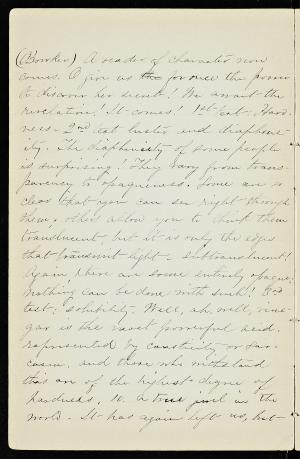 (Bowker) A reader of character now
comes. O give us the for once the power
to discover her secret! We await the
revelation! It comes! 1st test. Hard-
ness. 2nd test lustre and diaphene-
ity. The diapheneity of some people
is surprising. They vary from trans-
parency to opaqueness. Some are so
clear that you can see right through
them, others allow you to think them
translucent, but it is only the edges
that transmit light. Subtranslucent!
Again there are some entirely opaque
nothing can be done with such! 3rd
test, solubility. Well, ah, well, vine-
gar is the most powerful acid.
represented by causticity or sar-
casm, and those who withstand
this are of the highest degree of
hardness, 10. a true jewel in the
world. It has again left us, but